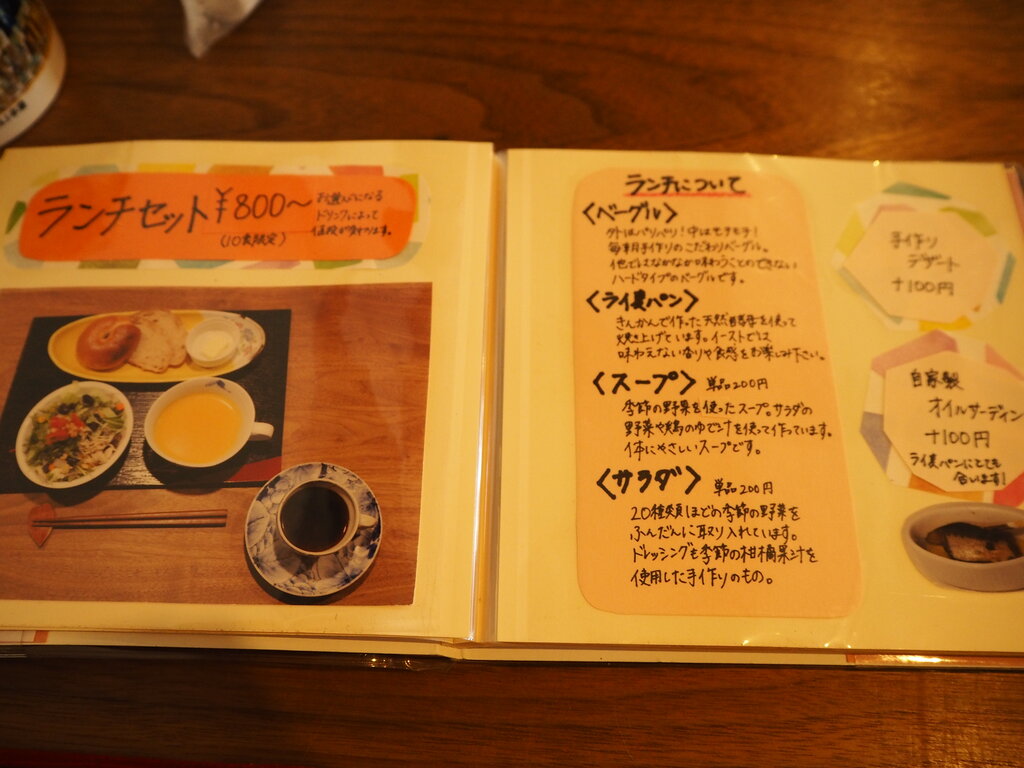 ランチセット ¥800〜
(10食限定)
お選びになる
ドリンクによって
値段が変わります。
ランチについて
〈ベーグル〉
外はパリパリ!中はモチモチ!
毎朝手作りのこだわりベーグル。
他ではなかなか味わうことのできない
ハードタイプのベーグルです。
〈ライ麦パン〉
きんかんで作った天然酵母を使って
焼き上げています。イーストでは
味わえない香りや食感をお楽しみ下さい。
〈スープ〉 単品200円
季節の野菜を使ったスープ。サラダの
野菜や鶏のゆで汁を使って作っています。
体にやさしいスープです。
〈サラダ〉 単品200円
20種類ほどの季節の野菜を
ふんだんに取り入れています。
ドレッシングも季節の柑橘果汁を
使用した手作りのもの。
手作り
デザート
+100円
自家製
オイルサーディン
+100円
ライ麦パンにとても
合います!